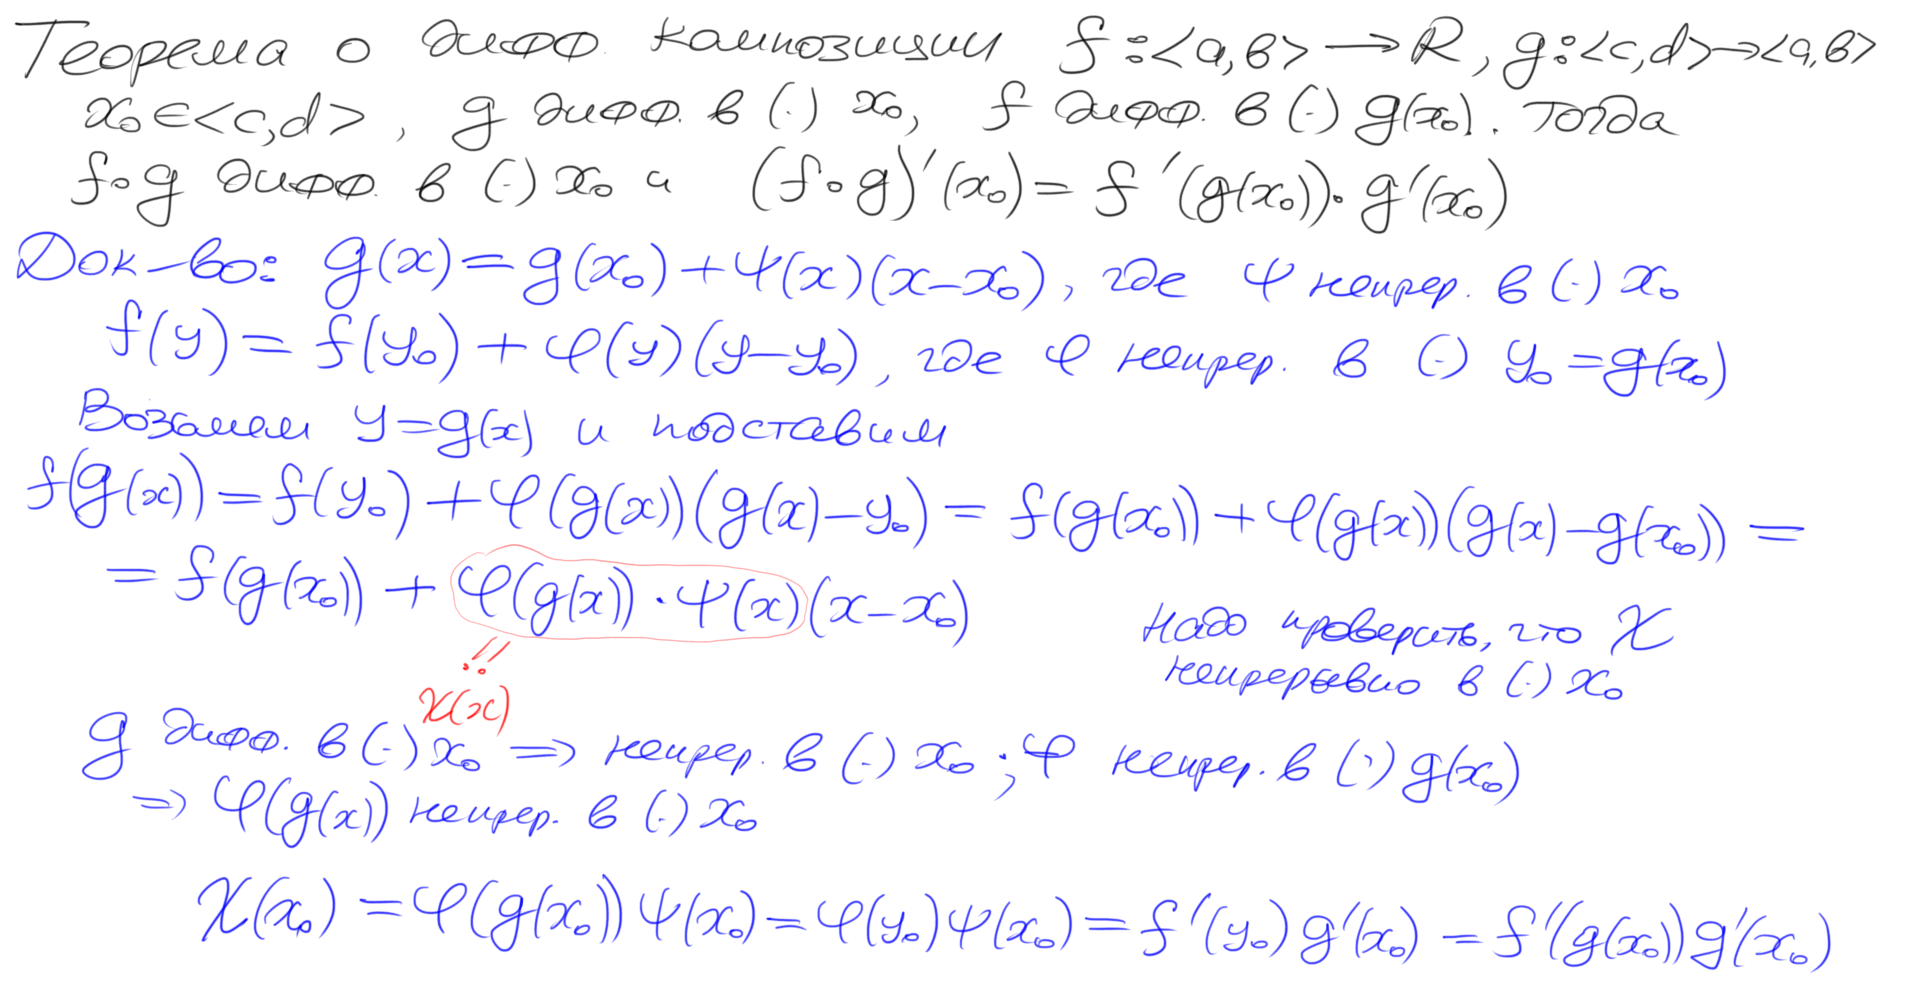 Теорема о дифф. композиции f:<a,b> → R, g:<c,d> → <a,b>
x₀∈<c,d>, g дифф. в (·) x₀, f дифф. в (·) g(x₀). Тогда
f∘g дифф. в (·) x₀ и (f∘g)'(x₀) = f'(g(x₀))·g'(x₀)
Док-во: g(x) = g(x₀) + ψ(x)(x−x₀), где ψ непрер. в (·) x₀
f(y) = f(y₀) + φ(y)(y−y₀), где φ непрер. в (·) y₀ = g(x₀)
Возьмем y = g(x) и подставим
f(g(x)) = f(y₀) + φ(g(x))(g(x)−y₀) = f(g(x₀)) + φ(g(x))(g(x)−g(x₀)) =
= f(g(x₀)) + φ(g(x))·ψ(x)(x−x₀)
Надо проверить, что χ
непрерывно в (·) x₀
χ(x)
g дифф. в (·) x₀ ⇒ непрер. в (·) x₀; φ непрер. в (·) g(x₀)
⇒ φ(g(x)) непрер. в (·) x₀
χ(x₀) = φ(g(x₀))ψ(x₀) = φ(y₀)ψ(x₀) = f'(y₀)g'(x₀) = f'(g(x₀))g'(x₀)